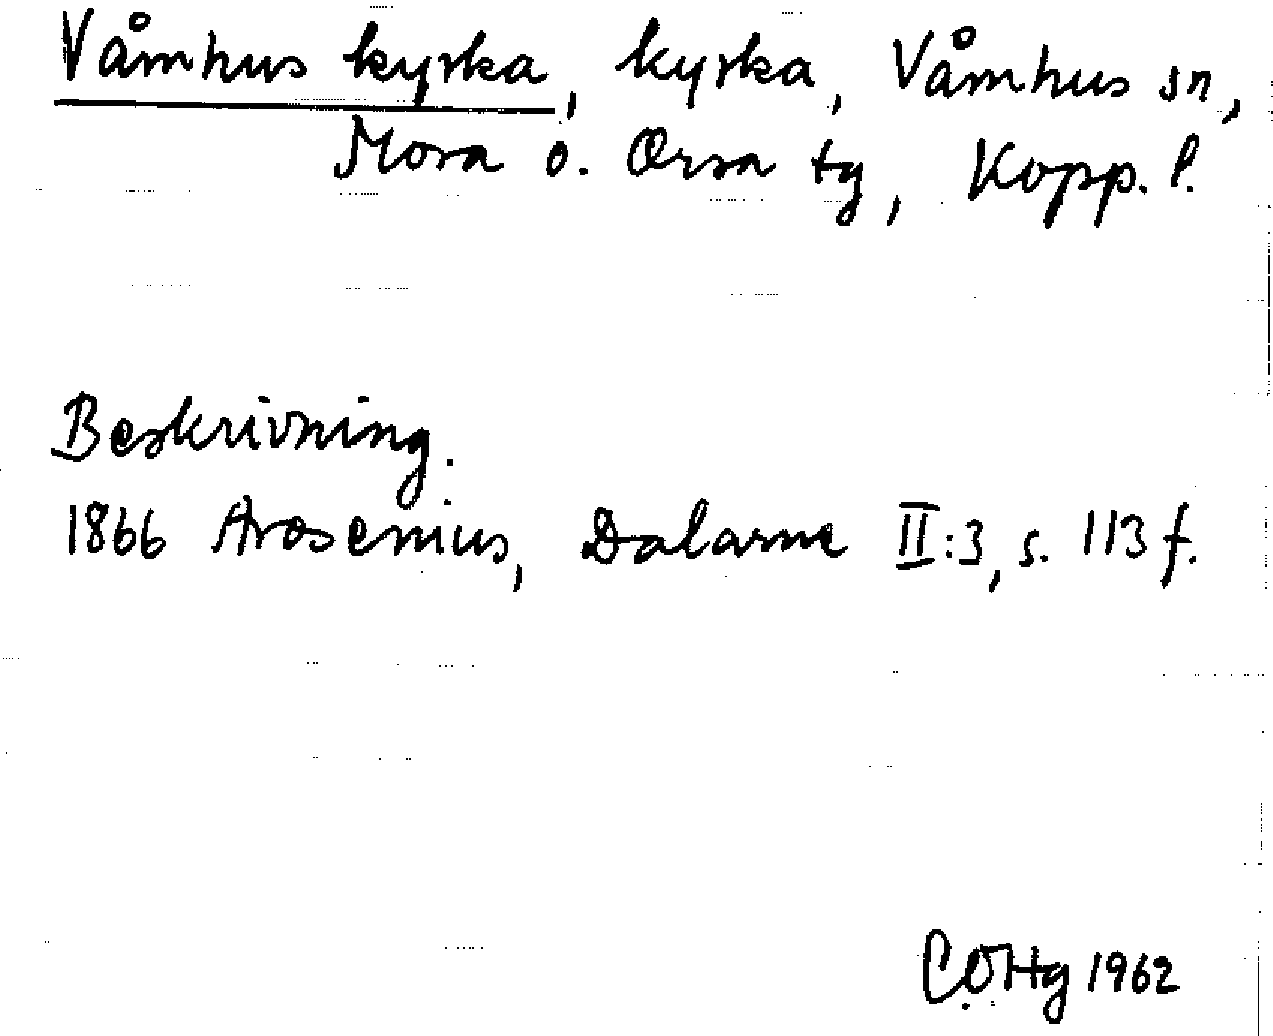 Våmhus kyrka, kyrka, Våmhus sn,
Mora o. Orsa tg, Kopp. l.
Beskrivning.
1866 Arosenius, Dalarne II:3, s. 113 f.
COHg 1962